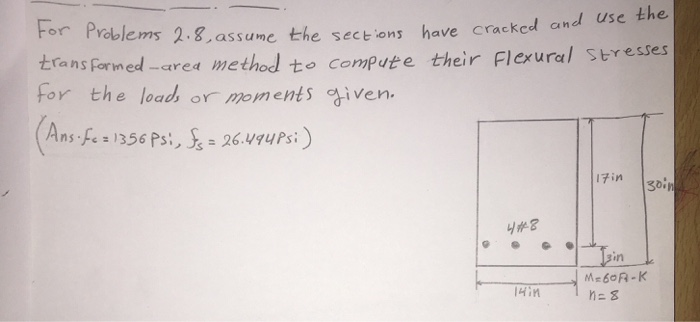 For Problems 2.8, assume the sections have cracked and use the
transformed-area method to compute their Flexural stresses
for the loads or moments given.
(Ans. fc = 1356 Psi, fs = 26.494 Psi)
17in
30in
4#8
3in
14in
M=60Ft-K
n=8